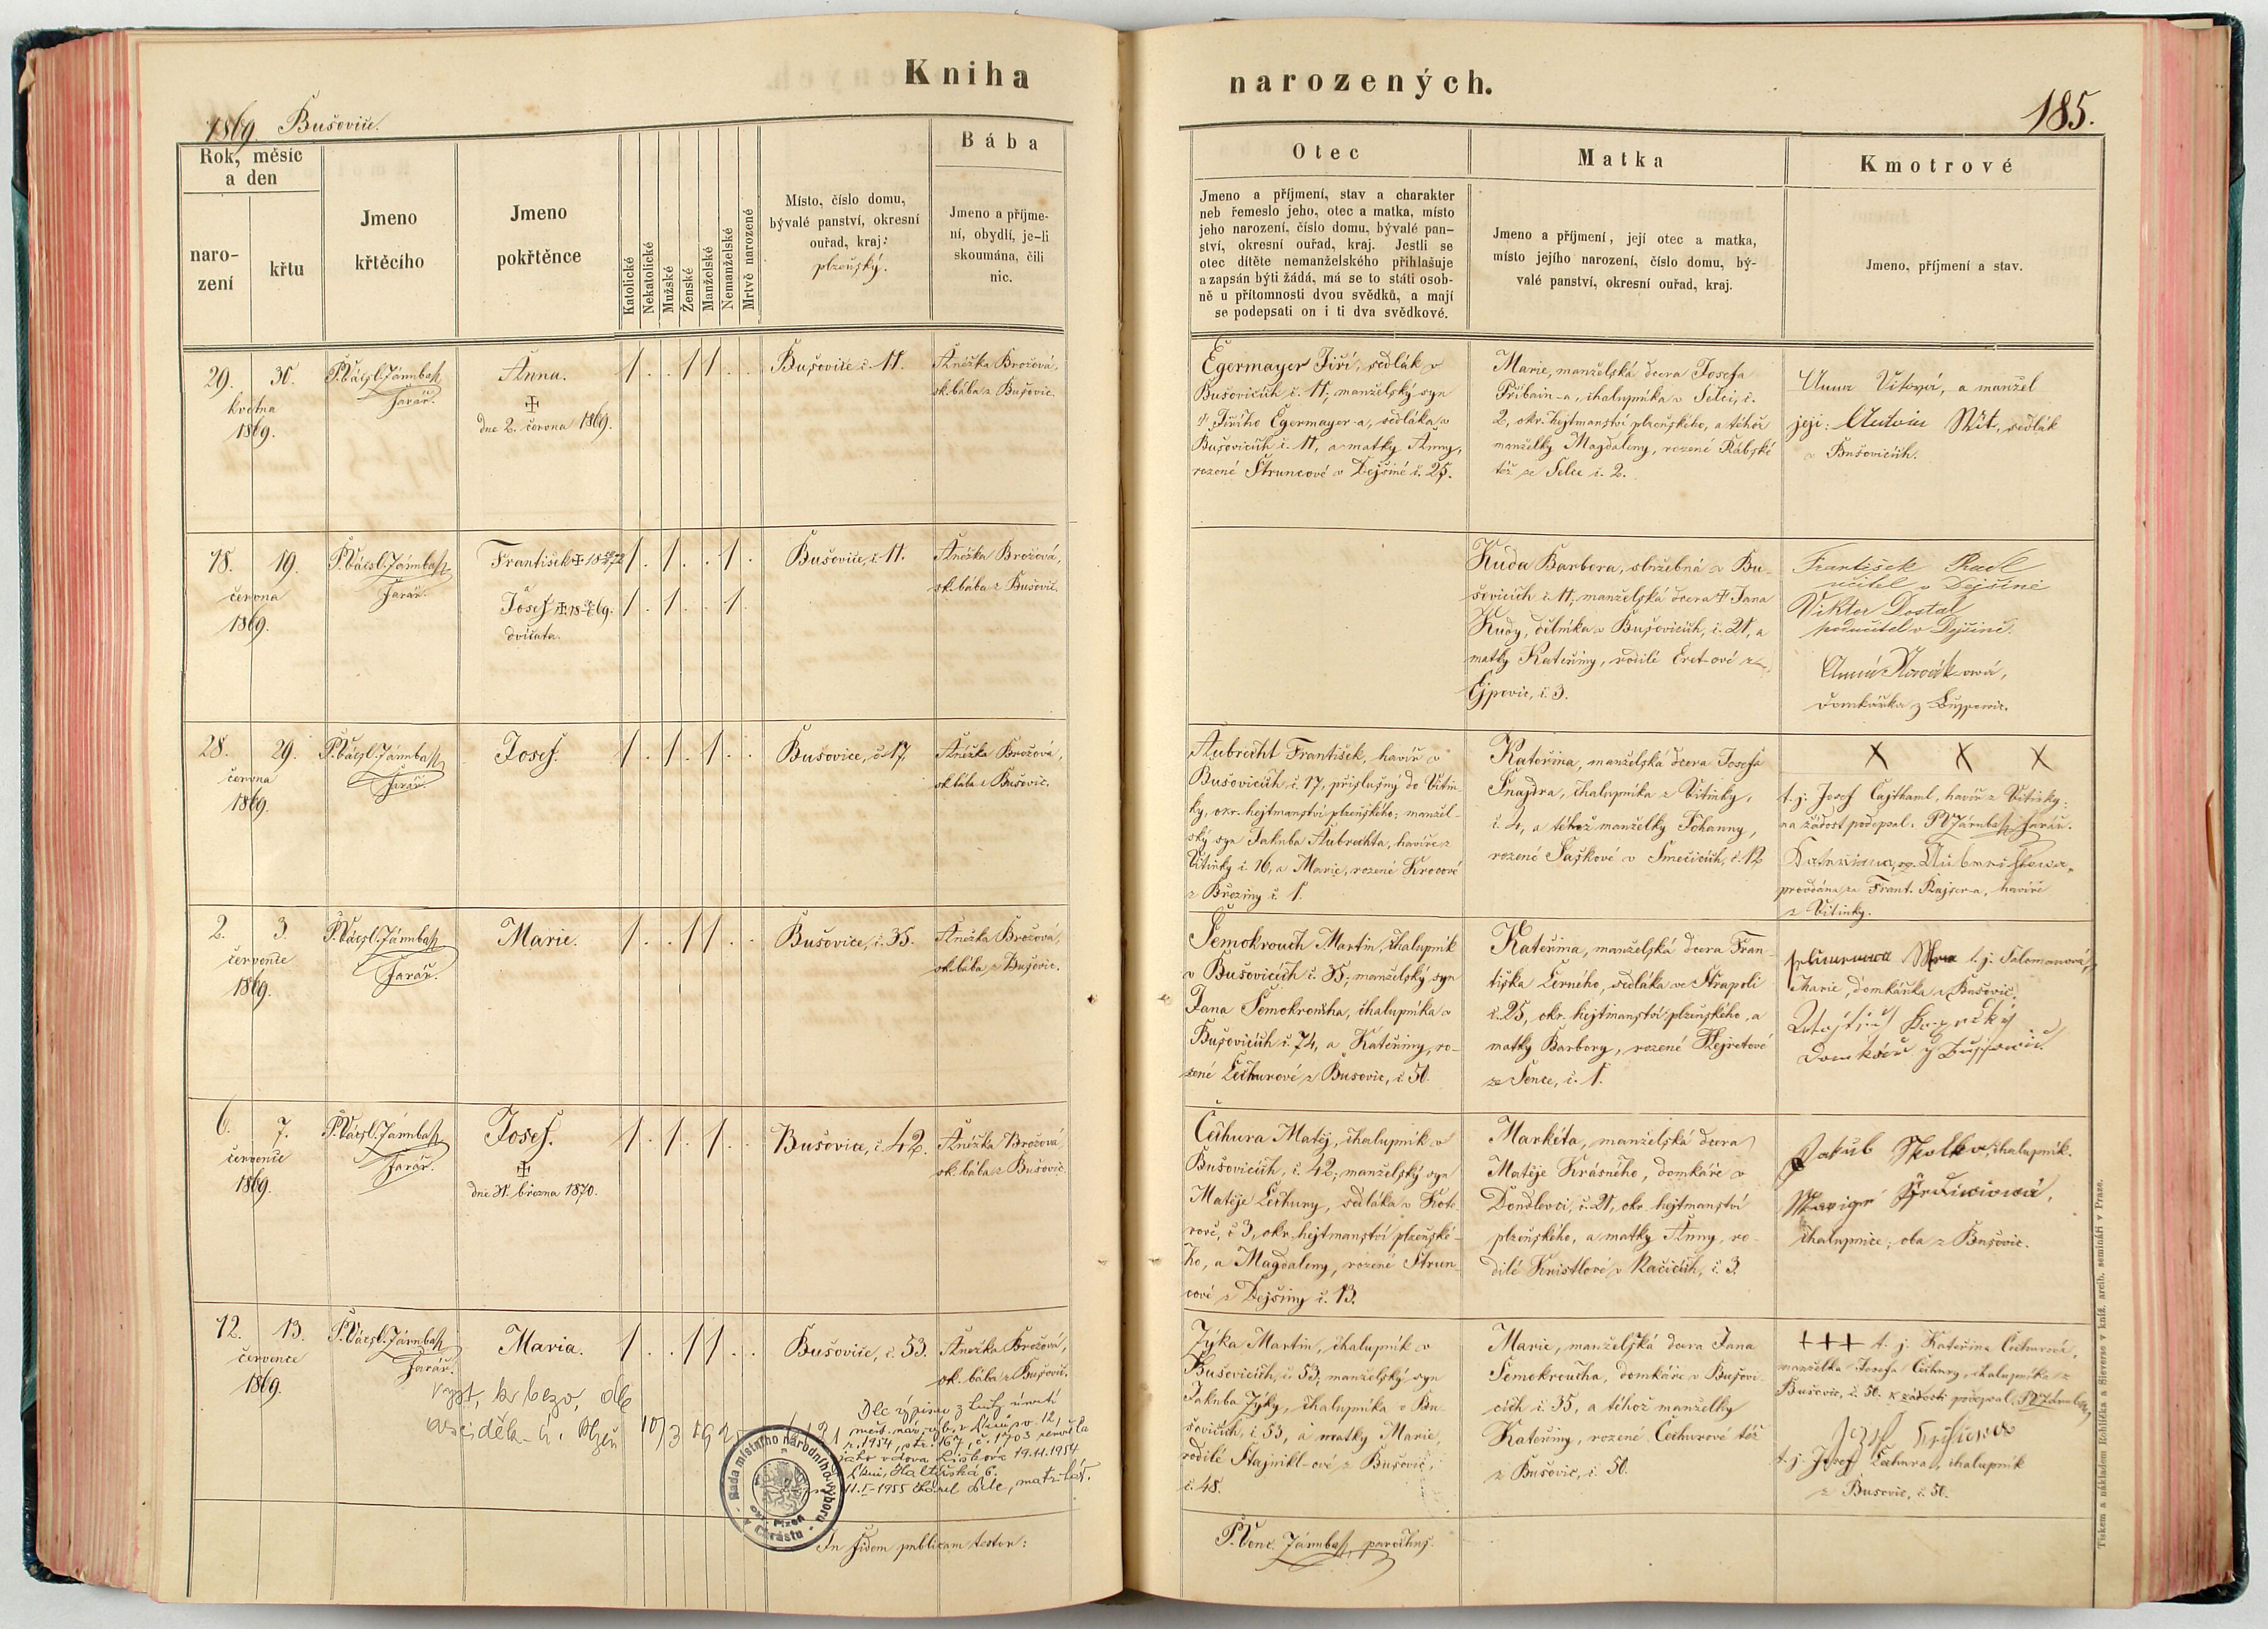 Kniha
narozených.
1869. Bušovice.
185.
Rok, měsíc
a den
naro-
zení
křtu
Jmeno
křtěcího
Jmeno
pokřtěnce
Katolické
Nekatolické
Mužské
Ženské
Manželské
Nemanželské
Mrtvě narozené
Místo, číslo domu,
bývalé panství, okresní
ouřad, kraj:
plzeňský.
Bába
Jmeno a příjme-
ní, obydlí, je-li
skoumána, čili
nic.
Otec
Jmeno a příjmení, stav a charakter
neb řemeslo jeho, otec a matka, místo
jeho narození, číslo domu, bývalé pan-
ství, okresní ouřad, kraj. Jestli se
otec dítěte nemanželského přihlašuje
a zapsán býti žádá, má se to státi osob-
ně u přítomnosti dvou svědků, a mají
se podepsati on i ti dva svědkové.
Matka
Jmeno a příjmení, její otec a matka,
místo jejího narození, číslo domu, bý-
valé panství, okresní ouřad, kraj.
Kmotrové
Jmeno, příjmení a stav.
29. 30.
května
1869.
farář.
Anna.
dne 2. června 1869.
Bušovice č. 11.
Anežka Brožová,
sk. bába z Bušovic.
Egermayer Jiří, sedlák v
Bušovicích č. 11; manželský syn
† Jiřího Egermayer-a, sedláka v
Bušovicích č. 11, a matky Anny,
rozené Štruncové v Dejšině č. 25.
Marie, manželská dcera Josefa
Přibáin-a, chalupníka v Selci, č.
2, okr. hejtmanství plzeňského, a téhož
manželky Magdaleny, rozené Rábské
též ze Selce č. 2.
Anna Vítová, a manžel
její: Antonín Vít, sedlák
v Bušovicích.
18. 19.
června
1869.
farář.
František
Josef
dvojčata.
Bušovice, č. 11.
Anežka Brožová,
sk. bába z Bušovic.
Kuda Barbora, služebná v Bu-
šovicích č. 11; manželská dcera † Jana
Kudy, dělníka v Bušovicích, č. 21, a
matky Kateřiny, rodilé Eret-ové z
Ejpovic, č. 3.
František Radl
učitel v Dejšině
Viktor Dostal
podučitel v Dejšině.
Anna Nováková,
domkářka z Bušovic.
28. 29.
června
1869.
farář.
Josef.
Bušovice, č. 17.
Anežka Brožová,
sk. bába z Bušovic.
Aubrecht František, havíř v
Bušovicích č. 17, příslušný do Vitin-
ky, okr. hejtmanství plzeňského; manžel-
ský syn Jakuba Aubrechta, havíře z
Vitinky č. 16, a Marie, rozené Krocové
z Březiny č. 1.
Kateřina, manželská dcera Josefa
Šnajdra, chalupníka z Vitinky,
č. 4, a téhož manželky Johanny,
rozené Šaškové v Smečicích, č. 12
X X X
t. j. Josef Cajthaml, havíř z Vitinky;
na žádost podepsal: farář.
provdána za Frant. Rajser-a, havíře
z Vitinky.
2. 3.
července
1869.
farář.
Marie.
Bušovice, č. 35.
Anežka Brožová,
sk. bába z Bušovic.
Šemokrouch Martin, chalupník
v Bušovicích č. 35; manželský syn
Jana Šemokroucha, chalupníka v
Bušovicích č. 74, a Kateřiny, ro-
zené Čechurové z Bušovic, č. 50.
Kateřina, manželská dcera Fran-
tiška Černého, sedláka ve Strapoli
č. 25, okr. hejtmanství plzeňského, a
matky Barbory, rozené
ze Sence, č. 1.
t. j. Salomonová,
Marie, domkářka z Bušovic.
6. 7.
července
1869.
farář.
Josef.
dne 31. března 1870.
Bušovice, č. 42.
Anežka Brožová
sk. bába z Bušovic.
Čechura Matěj, chalupník v
Bušovicích, č. 42; manželský syn
Matěje Čechury, sedláka v Koto-
rově, č. 3, okr. hejtmanství plzeňské-
ho, a Magdaleny, rozené Štrun-
cové z Dejšiny č. 13.
Markéta, manželská dcera
Matěje Krásného, domkáře v
Dondlevci, č. 21, okr. hejtmanství
plzeňského, a matky Anny, ro-
dilé Kristlové v Račicích, č. 3.
Jakub chalupník.
chalupnice; oba z Bušovic.
12. 13.
července
1869.
farář.
Maria.
Bušovice, č. 53.
Anežka Brožová,
sk. bába z Bušovic.
Zýka Martin, chalupník v
Bušovicích, č. 53; manželský syn
Jakuba Zýky, chalupníka v Bu-
šovicích, č. 53, a matky Marie,
rodilé z Bušovic,
č. 48.
Marie, manželská dcera Jana
Šemokroucha, domkáře v Bušovi-
cích č. 35, a téhož manželky
Kateřiny, rozené Čechurové též
z Bušovic, č. 50.
+++ t. j. Kateřina Čechurová,
manželka Josefa Čechury, chalupníka z
Bušovic, č. 50. k žádosti podepsal
t. j. Josef Čechura, chalupník
z Bušovic, č. 50.
Dle výpisu z knihy úmrtí
r. 1954, str. 167, č. 1703 zemřela
jako vdova 19.11.1954
11.I-1955
Rada místního národního výboru
v Chrástu
okr. Plzeň
In fidem publicam testor:
Tiskem a nákladem Rohlíčka a Sieverse v kníž. arcib. semináři v Praze.